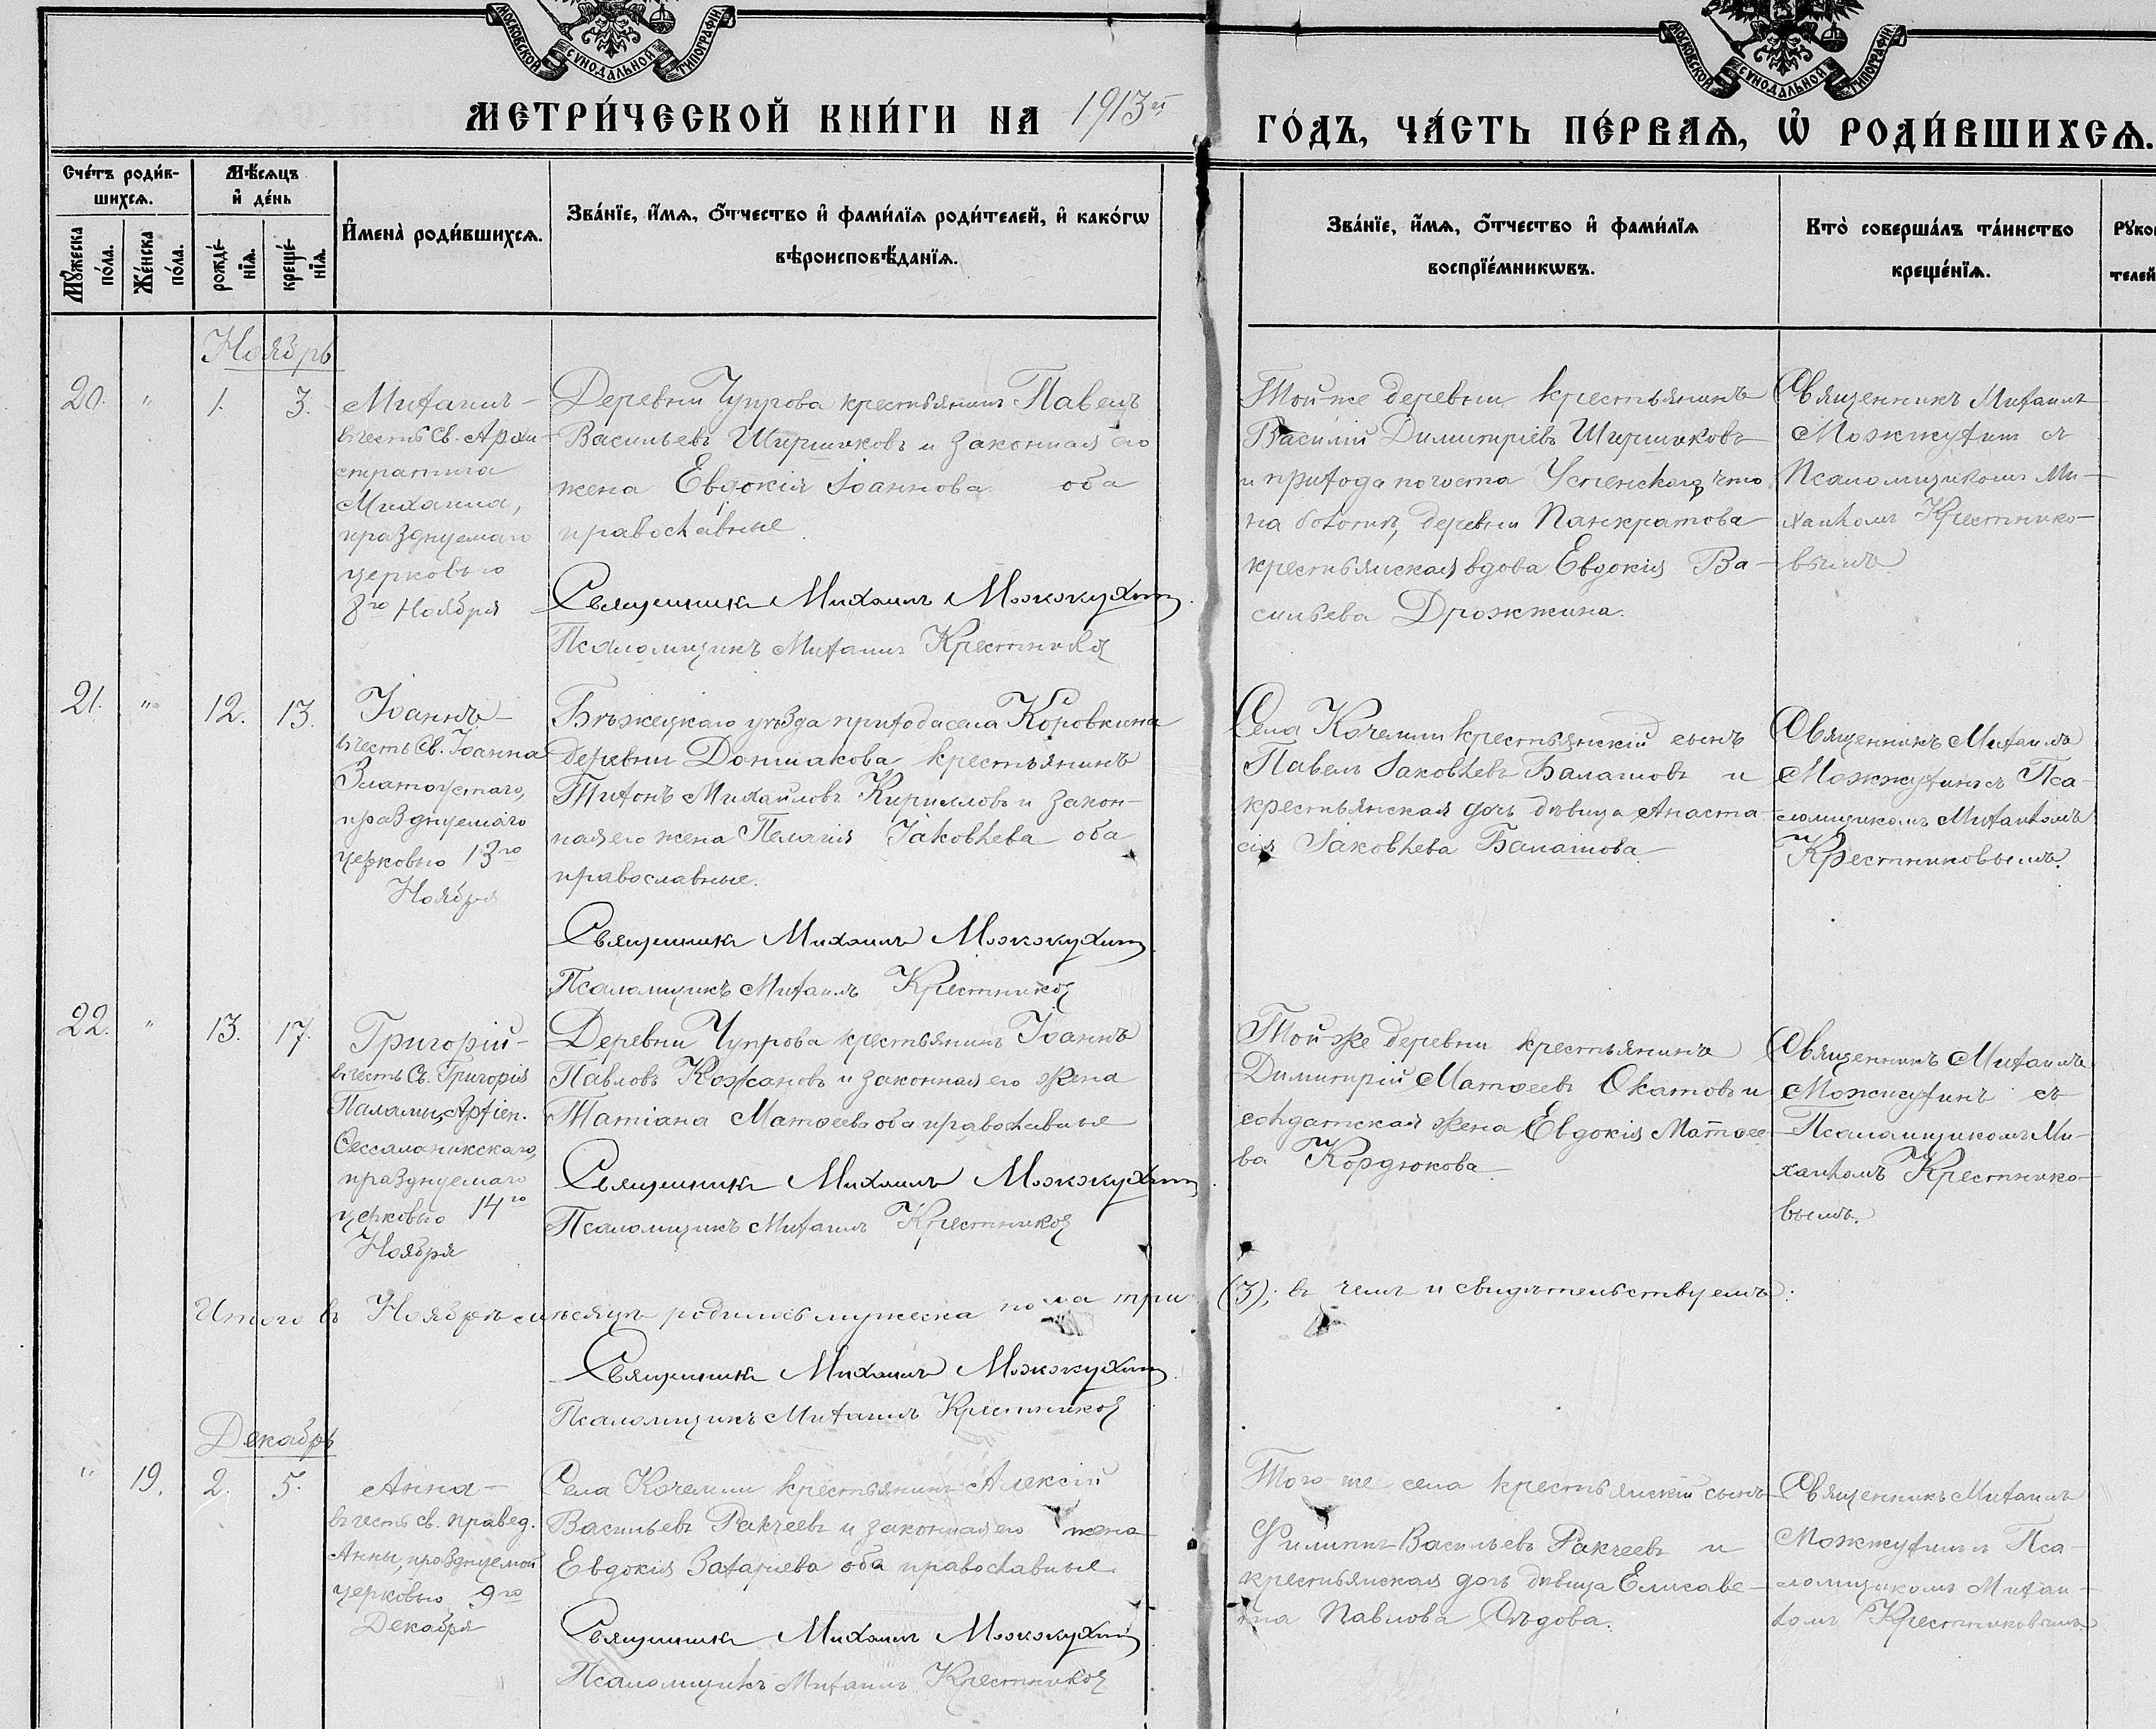 МОСКОВСКОЙ СУНОДАЛЬНОЙ ТИПОГРАФІИ
МОСКОВСКОЙ СУНОДАЛЬНОЙ ТИПОГРАФІИ
МЕТРИ́ЧЕСКОЙ КНИ́ГИ НА 1913й
ГО́ДЪ, ЧА́СТЬ ПЕ́РВАѦ, Ѿ РОДИ́ВШИХСѦ.
Сче́тъ роди́в-
шихсѧ.
Мꙋ́жеска
по́ла.
Же́нска
по́ла.
Мѣ́сѧцъ
и҆ де́нь
рожде́-
нїѧ.
креще́-
нїѧ.
И҆мена̀ роди́вшихсѧ.
Зва́нїе, и҆́мѧ, ѻ҆́тчество и҆ фами́лїѧ роди́телей, и҆ како́гѡ
вѣроисповѣ́данїѧ.
Зва́нїе, и҆́мѧ, ѻ҆́тчество и҆ фами́лїѧ
воспрїе́мникѡвъ.
Кто̀ соверша́лъ та́инство
креще́нїѧ.
Ноябрь
20. " 1. 3.
Михаилъ –
въ честь Св. Архи-
стратига
Михаила,
празднуемаго
церковью
8го Ноября
Деревни Чупрова крестьянинъ Павелъ
Васильевъ Ширшиковъ и законная его
жена Евдокія Іоаннова оба
православные.
Священникъ Михаилъ Можжухинъ
Псаломщикъ Михаилъ Крестниковъ
Той же деревни крестьянинъ
Василій Димитріевъ Ширшиковъ
и прихода погоста Успенскаго, что
на болотѣ, деревни Панкратова
крестьянская вдова Евдокія Ва-
сильева Дрожжина.
Священникъ Михаилъ
Можжухинъ съ
Псаломщикомъ Ми-
хаиломъ Крестнико-
вымъ
21. " 12. 13.
Іоаннъ –
въ честь Св. Іоанна
Златоустаго,
празднуемаго
церковью 13го
Ноября
Бѣжецкаго уѣзда прихода села Коровкина
деревни Доншакова крестьянинъ
Тихонъ Михайловъ Кирилловъ и закон-
ная его жена Пелагія Іаковлева оба
православные.
Священникъ Михаилъ Можжухинъ
Псаломщикъ Михаилъ Крестниковъ
Села Кочемли крестьянскій сынъ
Павелъ Іаковлевъ Балашовъ и
крестьянская дочь дѣвица Анаста-
сія Іаковлева Балашова
Священникъ Михаилъ
Можжухинъ съ Пса-
ломщикомъ Михаиломъ
Крестниковымъ.
22. " 13. 17.
Григорій –
въ честь Св. Григорія
Паламы, Архіеп.
Ѳессалоникскаго,
празднуемаго
церковью 14го
Ноября
Деревни Чупрова крестьянинъ Іоаннъ
Павловъ Кожановъ и законная его жена
Татіана Матѳеева оба православные
Священникъ Михаилъ Можжухинъ
Псаломщикъ Михаилъ Крестниковъ
Той же деревни крестьянинъ
Димитрій Матѳеевъ Окатовъ и
солдатская жена Евдокія Матѳее-
ва Кордюкова
Священникъ Михаилъ
Можжухинъ съ
Псаломщикомъ Ми-
хаиломъ Крестнико-
вымъ.
Итого въ Ноябрѣ мѣсяцѣ родилось мужеска пола три (3); въ чемъ и свидѣтельствуемъ:
Священникъ Михаилъ Можжухинъ
Псаломщикъ Михаилъ Крестниковъ
Декабрь
" 19. 2. 5.
Анна –
въ честь св. правед.
Анны, празднуемой
церковью 9го
Декабря
Села Кочемли крестьянинъ Алексій
Васильевъ Ракчеевъ и законная его жена
Евдокія Захаріева оба православные.
Священникъ Михаилъ Можжухинъ
Псаломщикъ Михаилъ Крестниковъ
Того же села крестьянскій сынъ
Филиппъ Васильевъ Ракчеевъ и
крестьянская дочь дѣвица Елисаве-
та Павлова Сѣдова.
Священникъ Михаилъ
Можжухинъ съ Пса-
ломщикомъ Михаи-
ломъ Крестниковымъ